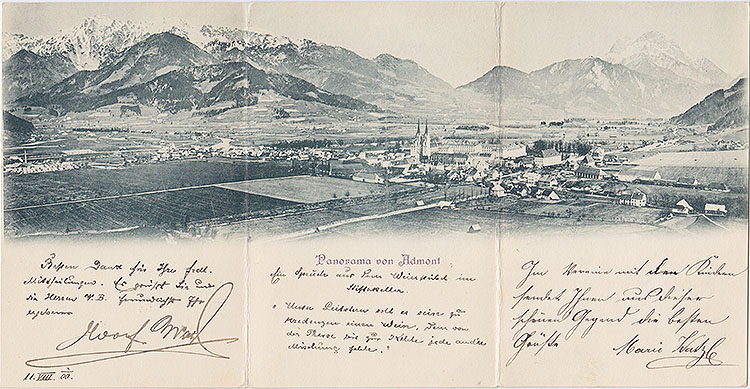 Panorama von Admont
Besten Dank für Ihre frdl.
Mittheilungen. Es grüsst Sie und
die Herren V.B. freundlichst Ihr
ergebener
11. VIII. 00.
Ein Spruch aus dem Weinstübel im
Stiftskeller
" Unser Leitstern soll es sein zu
kredenzen einen Wein, dem von
der Presse bis zur Kehle jede andre
Mischung fehle."
Im Vereine mit den Kindern
sendet Ihnen aus dieser
schönen Gegend die besten
Grüße
Marie